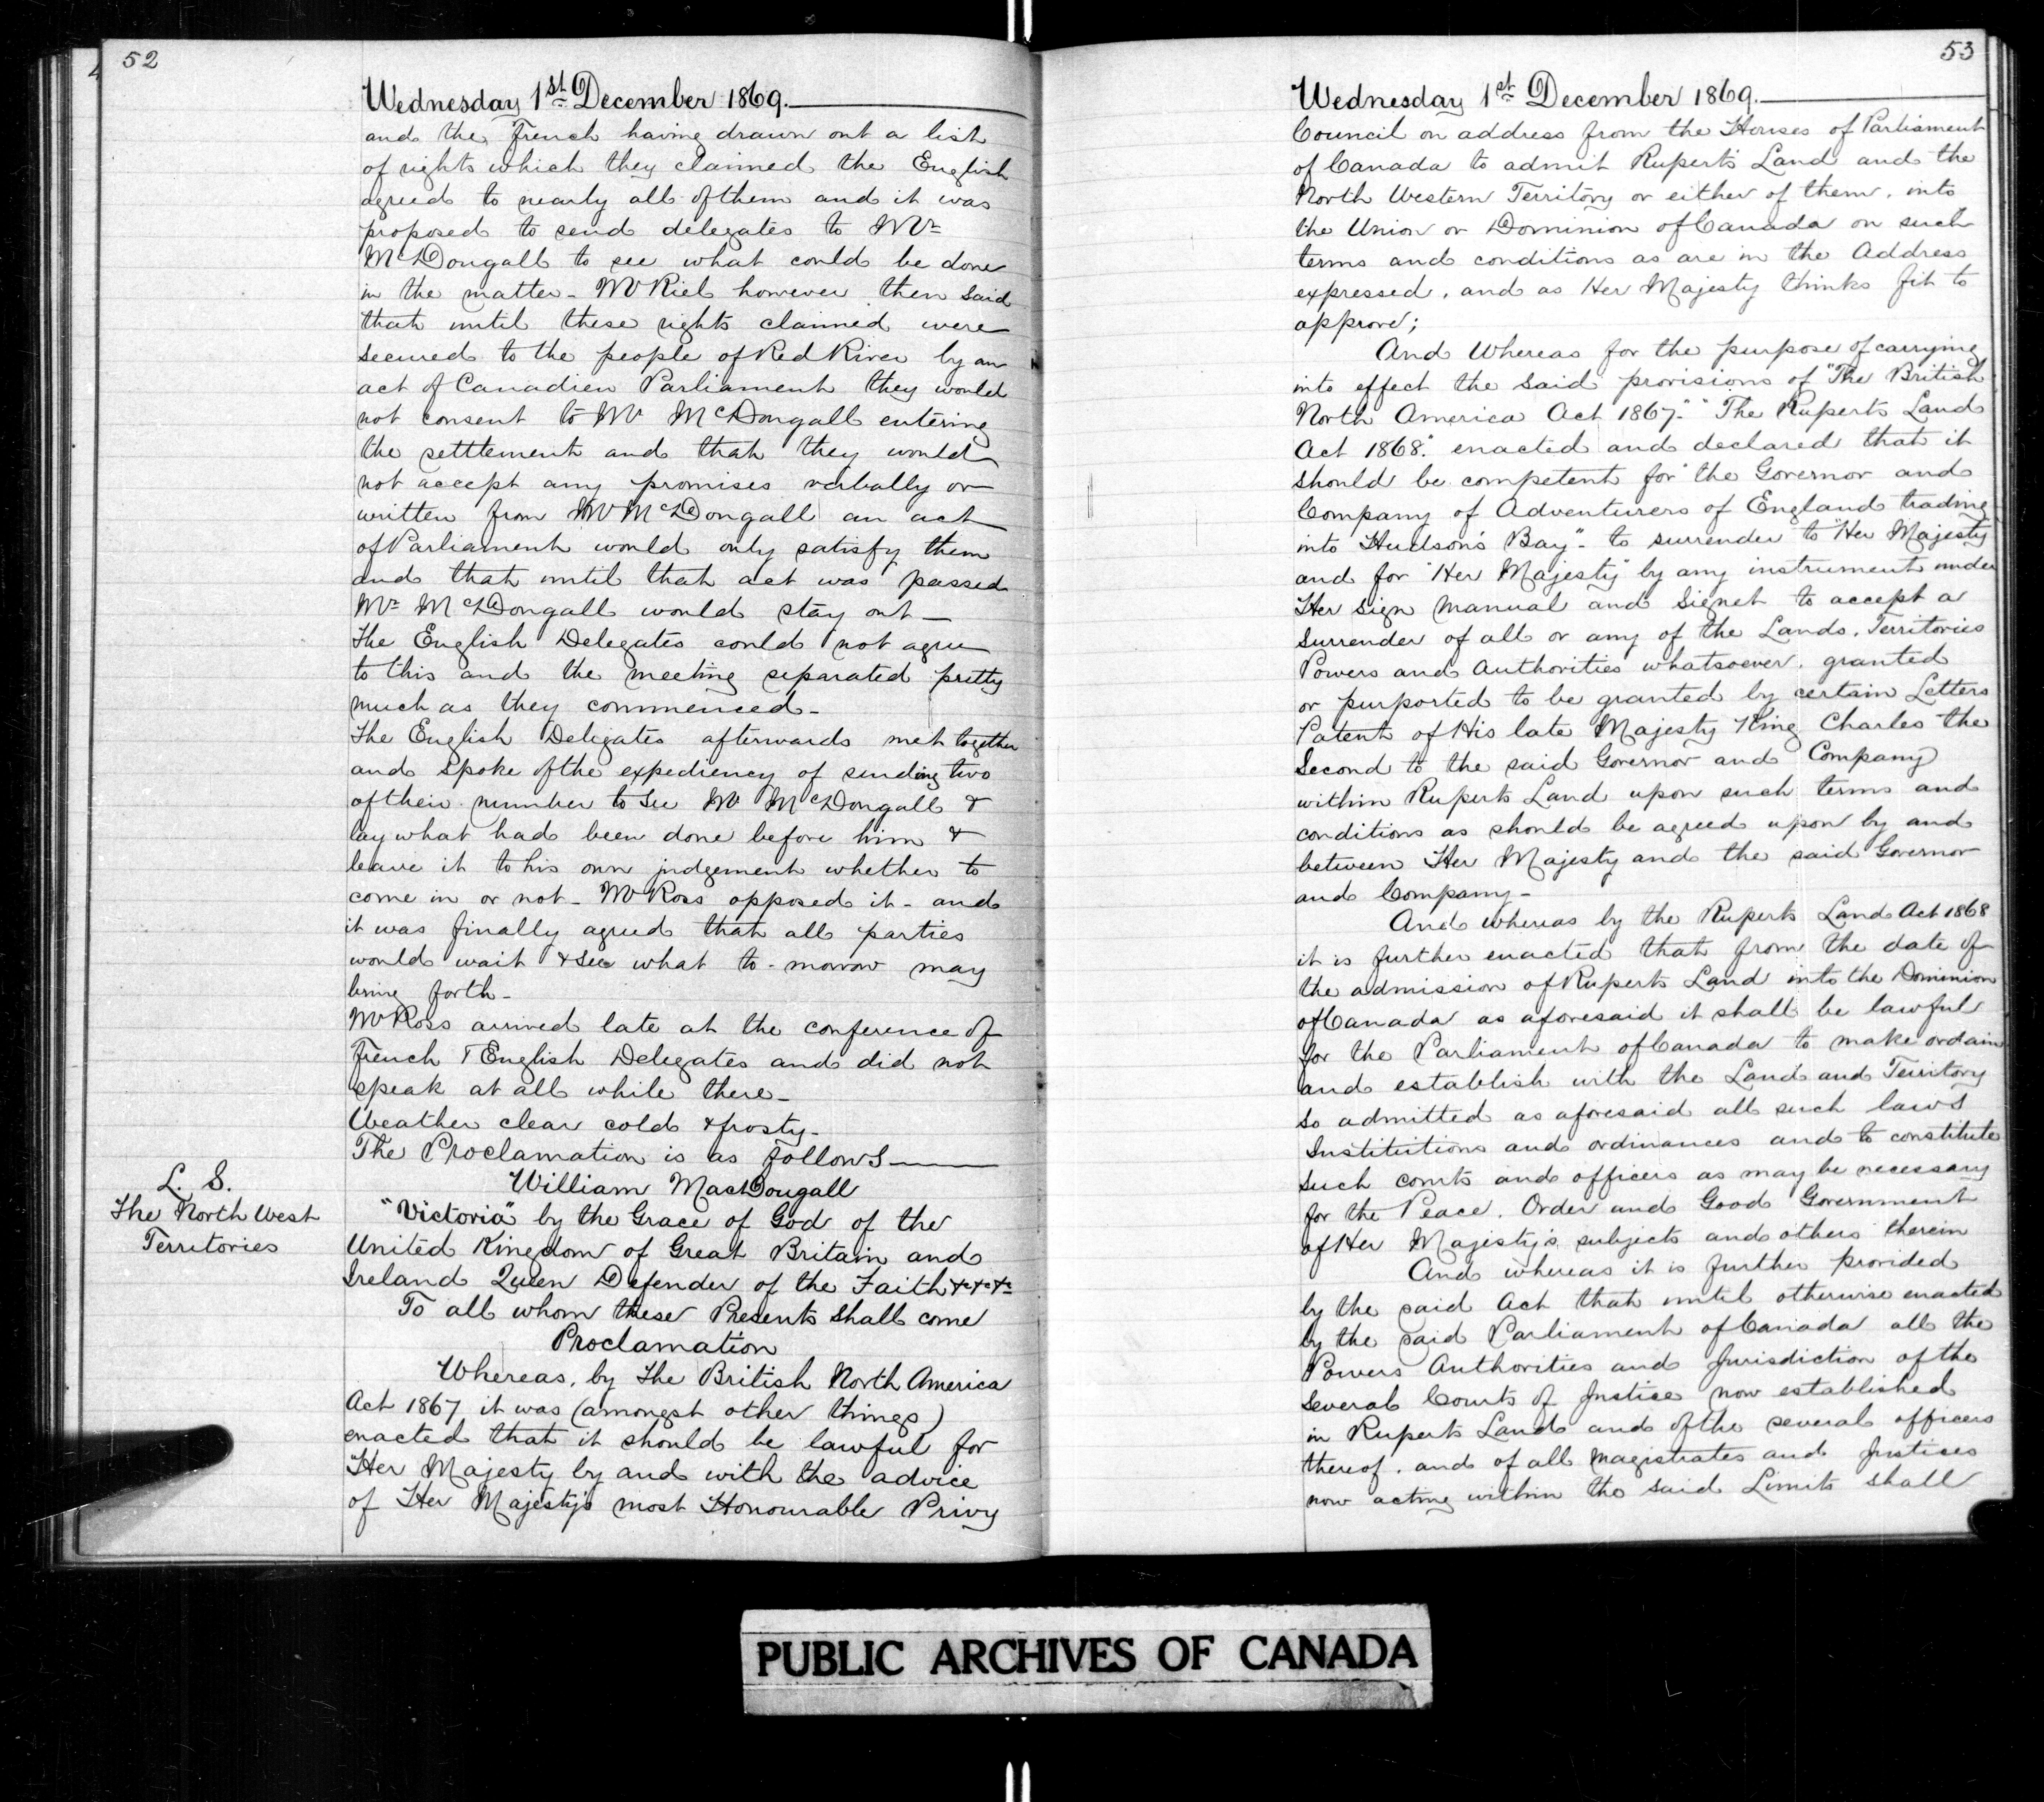 52
Wednesday 1st December 1869.
and the French having drawn out a list
of rights which they claimed the English
agreed to nearly all of them and it was
proposed to send delegates to Mr
McDougall to see what could be done
in the matter - Mr Riel however then said
that until these rights claimed were
secured to the people of Red River by an
act of Canadien Parliament they would
not consent to Mr McDougall entering
the settlement and that they would
not accept any promises verbally or
written from Mr McDougall an act
of Parliament would only satisfy them
and that until that act was passed
Mr McDougall would stay out —
The English Delegates could not agree
to this and the meeting separated pretty
much as they commenced -
The English Delegates afterwards met together
and spoke of the expediency of sending two
of their number to see Mr McDougall &
lay what had been done before him &
leave it to his own judgement whether to
come in or not - Mr Ross opposed it - and
it was finally agreed that all parties
would wait & see what to-morrow may
bring forth -
Mr Ross arrived late at the conference of
French & English Delegates and did not
speak at all while there -
Weather clear cold & frosty -
The Proclamation is as follows —
L. S.
The North West
Territories
William MacDougall
"Victoria" by the Grace of God of the
United Kingdom of Great Britain and
Ireland Queen Defender of the Faith &c &c &c
To all whom these Presents shall come
Proclamation
Whereas, by The British North America
Act 1867 it was (amongst other things)
enacted that it should be lawful for
Her Majesty by and with the advice
of Her Majesty's most Honourable Privy
53
Wednesday 1st December 1869.
Council on address from the Houses of Parliament
of Canada to admit Rupert's Land and the
North Western Territory or either of them, into
the Union or Dominion of Canada on such
terms and conditions as are in the Address
expressed, and as Her Majesty thinks fit to
approve;
And Whereas for the purpose of carrying
into effect the said provisions of "The British
North America Act 1867." "The Ruperts Land
Act 1868." enacted and declared that it
should be competent for "the Governor and
Company of Adventurers of England trading
into Hudson's Bay" - to surrender to "Her Majesty
and for "Her Majesty" by any instrument under
Her sign manual and Signet to accept a
surrender of all or any of the Lands, Territories
Powers and Authorities whatsoever, granted
or purported to be granted by certain Letters
Patent of His late Majesty King Charles the
Second to the said Governor and Company
within Ruperts Land upon such terms and
conditions as should be agreed upon by and
between Her Majesty and the said Governor
and Company -
And whereas by the Ruperts Land Act 1868
it is further enacted that from the date of
the admission of Ruperts Land into the Dominion
of Canada as aforesaid it shall be lawful
for the Parliament of Canada to make ordain
and establish with the Land and Territory
so admitted as aforesaid all such laws
Institutions and ordinances and to constitute
such courts and officers as may be necessary
for the Peace, Order and Good Government
of Her Majesty's subjects and others therein
And whereas it is further provided
by the said Act that until otherwise enacted
by the said Parliament of Canada all the
Powers Authorities and Jurisdiction of the
several Courts of Justice now established
in Ruperts Land and of the several officers
thereof, and of all Magistrates and Justices
now acting within the said Limits shall
PUBLIC ARCHIVES OF CANADA